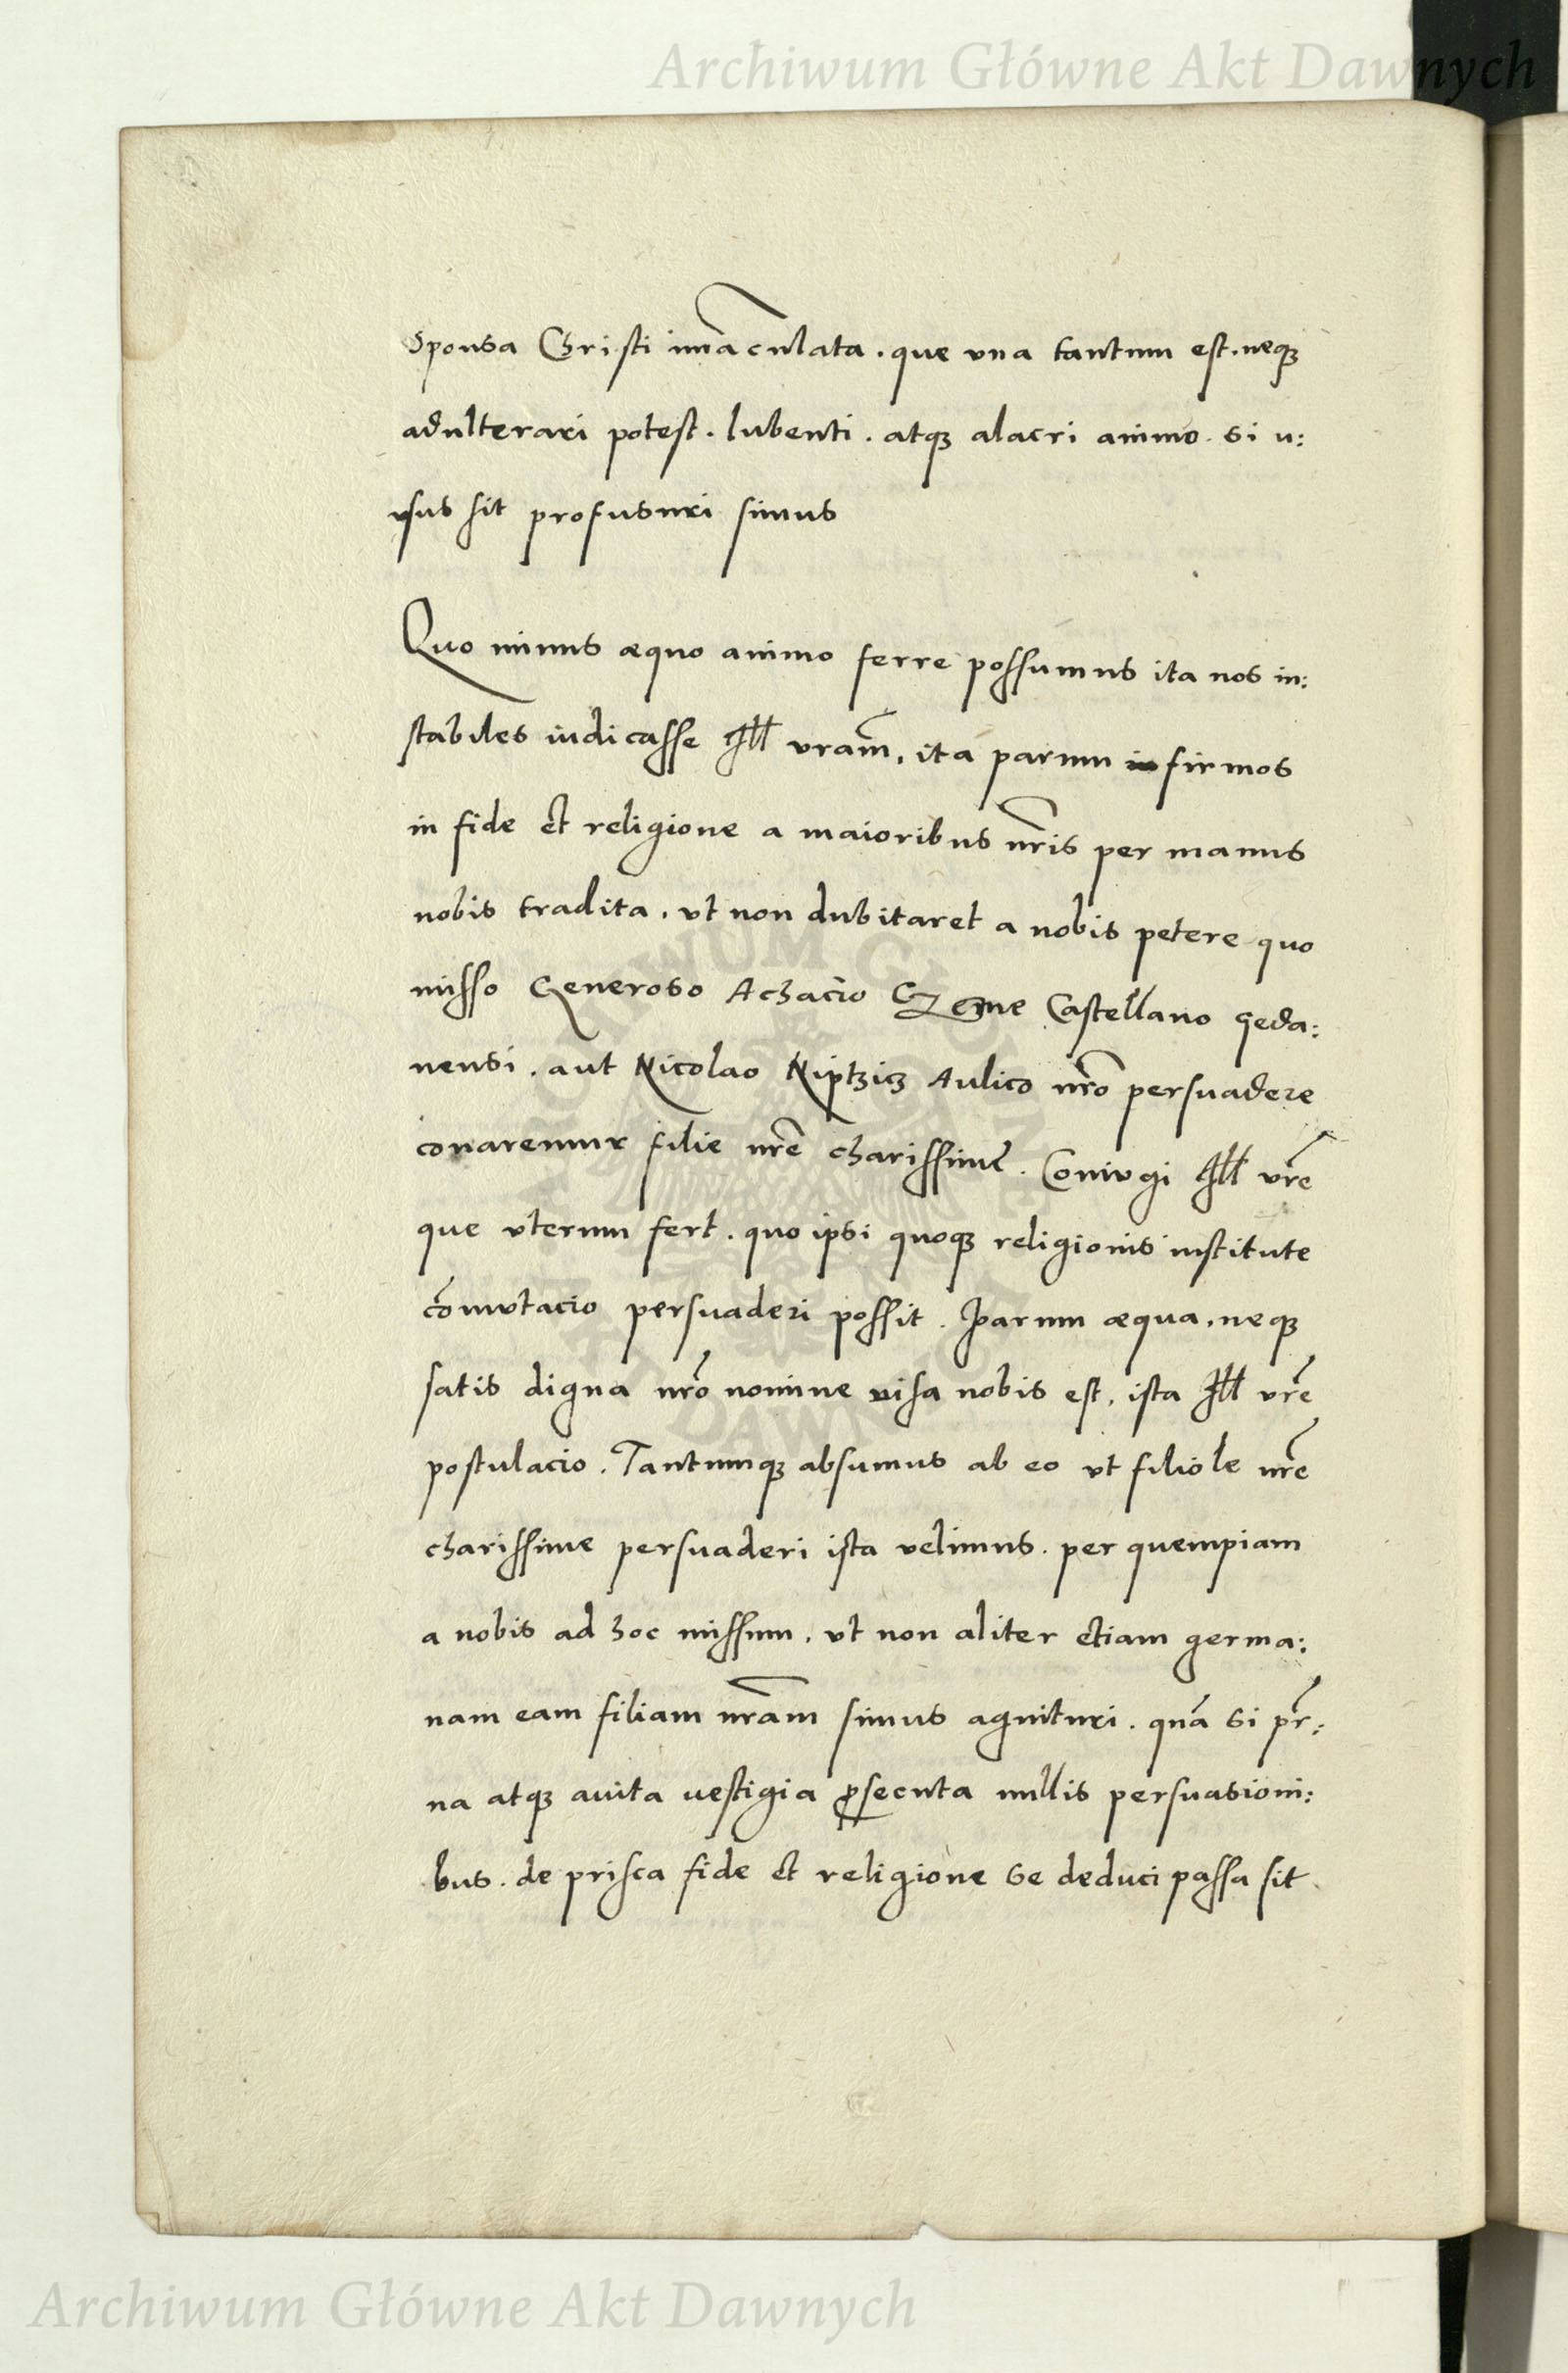 Archiwum Główne Akt Dawnych
Sponsa Christi im̄aculata . que vna tantum est . neqꝫ
adulterari potest . lubenti . atqꝫ alacri animo . si u:
sus sit profusuri simus
Quo minus æquo animo ferre possumus ita nos in:
stabiles iudicasse Ill vram̄, ita parum firmos
in fide et religione a maioribus nr̄is per manus
nobis tradita . vt non dubitaret a nobis petere quo
misso Generoso Achacio Czeme Castellano geda:
nensi . aut Nicolao Niptzicz Aulico nrō persuadere
conaremur filie nrē charissime . Coniugi Ill vrē
que vterum fert . quo ipsi quoqꝫ religionis institute
cōmutacio persuaderi possit . Parum æqua . neqꝫ
satis digna nrō nomine uisa nobis est . ista Ill vrē
postulacio . Tantumqꝫ absumus ab eo vt filiole nrē
charissime persuaderi ista velimus . per quempiam
a nobis ad hoc missum . vt non aliter etiam germa:
nam eam filiam nr̄am simus agnituri . quā si pr̄:
na atqꝫ auita vestigia ꝓsecuta nullis persuasioni:
bus . de prisca fide et religione se deduci passa sit .
Archiwum Główne Akt Dawnych